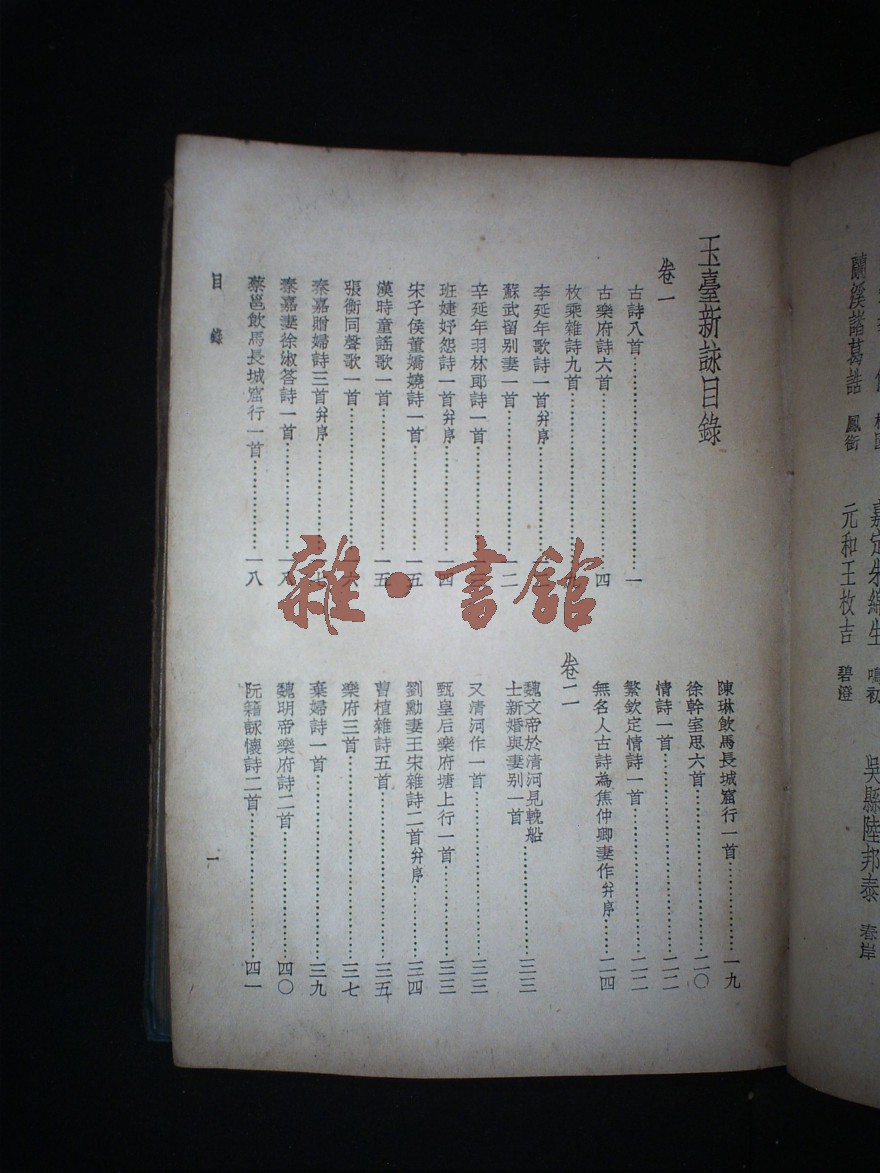 玉臺新詠目錄
卷一
古詩八首……………一
古樂府詩六首……………四
枚乘雜詩九首……………
李延年歌詩一首并序……………
蘇武留別妻一首……………一二
辛延年羽林郎詩一首……………
班婕妤怨詩一首并序……………一四
宋子侯董嬌嬈詩一首……………一五
漢時童謠歌一首……………一五
張衡同聲歌一首……………一六
秦嘉贈婦詩三首并序……………一七
秦嘉妻徐淑答詩一首……………一八
蔡邕飲馬長城窟行一首……………一八
陳琳飲馬長城窟行一首……………一九
徐幹室思六首……………二〇
情詩一首……………二二
繁欽定情詩一首……………二二
無名人古詩為焦仲卿妻作并序……………二四
卷二
魏文帝於清河見輓船
士新婚與妻別一首……………三三
又清河作一首……………三三
甄皇后樂府塘上行一首……………三三
劉勳妻王宋雜詩二首并序……………三四
曹植雜詩五首……………三五
樂府三首……………三七
棄婦詩一首……………三九
魏明帝樂府詩二首……………四〇
阮籍詠懷詩二首……………四一
目錄
一
嘉定朱錦生 鳴初
吳縣陸邦泰 春岸
蘭溪諸葛誥 鳳銜
元和王枚吉 碧澄
雜·書館